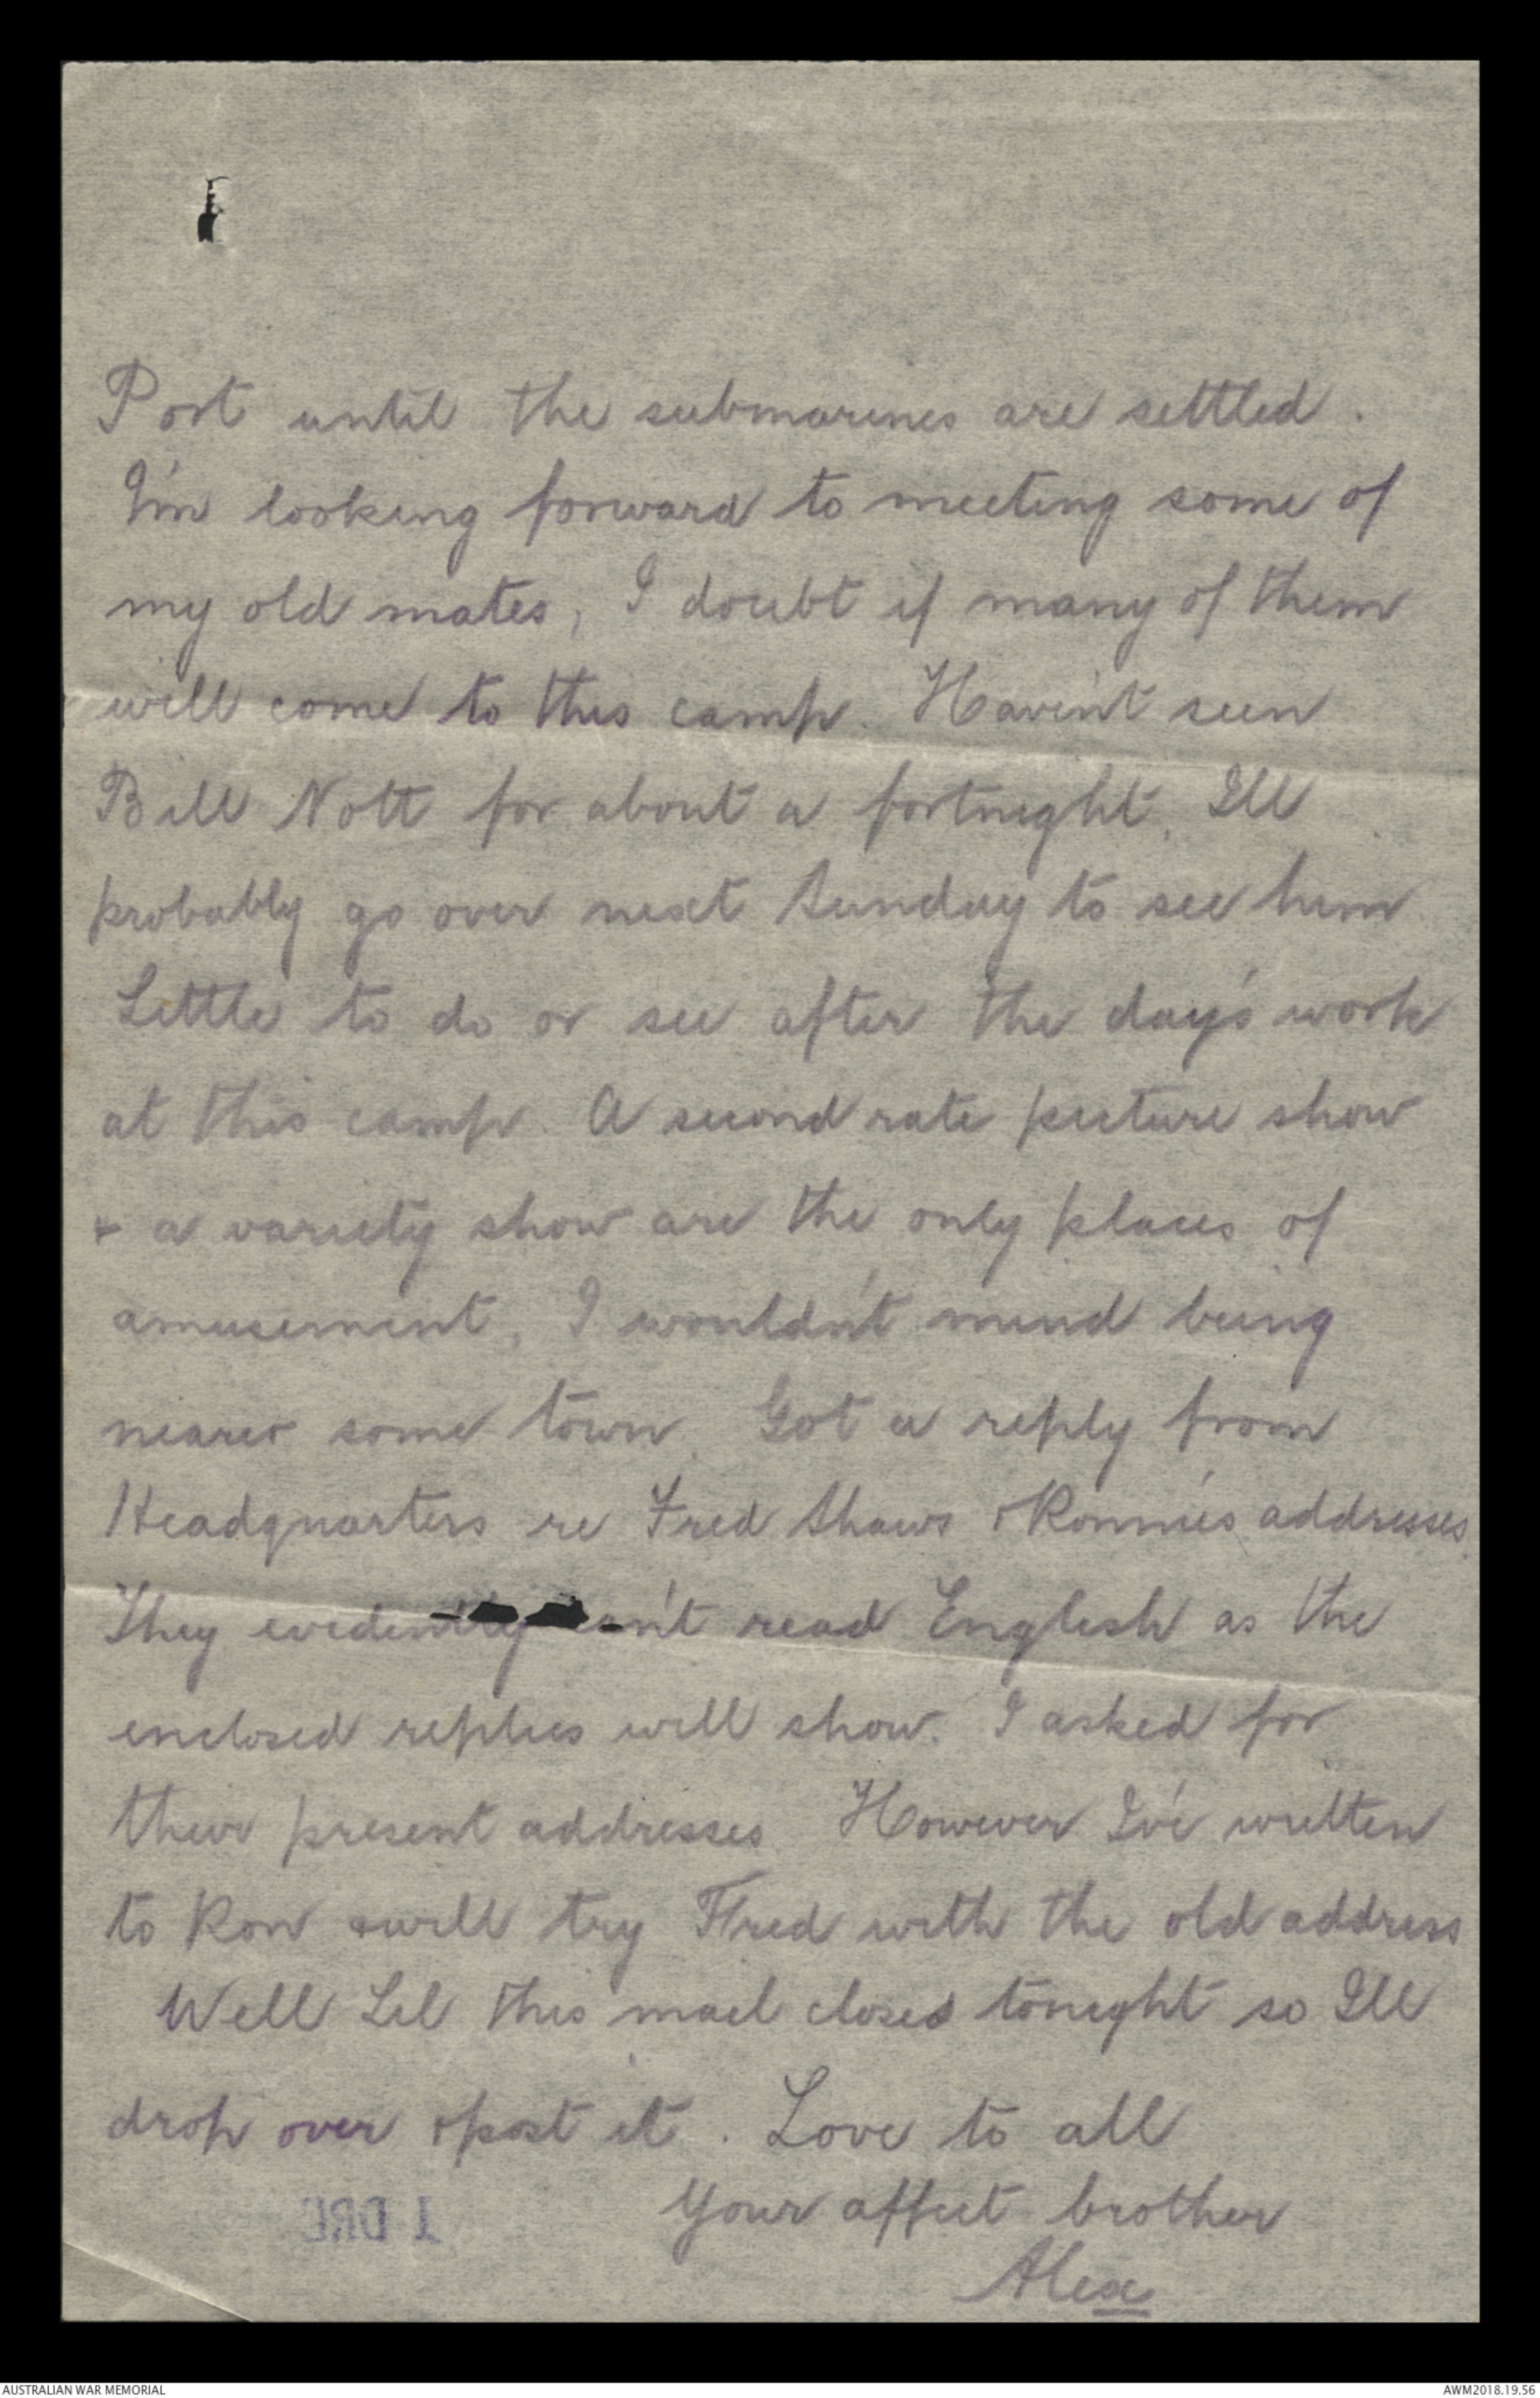 Port until the submarines are settled.
I'm looking forward to meeting some of
my old mates, I doubt if many of them
will come to this camp. Haven't seen
Bill Nott for about a fortnight. I'll
probably go over next Sunday to see him
Little to do or see after the day's work
at this camp. A second rate picture show
& a variety show are the only places of
amusement, I wouldn't mind being
nearer some town. Got a reply from
Headquarters re Fred Shaws & Ronnie's addresses
They evidently can't read English as the
enclosed replies will show. I asked for
their present addresses However I've written
to Ron & will try Fred with the old address
Well Lil this mail closes tonight so I'll
drop over & post it. Love to all
Your affect brother
Alex
AUSTRALIAN WAR MEMORIAL
AWM2018.19.56